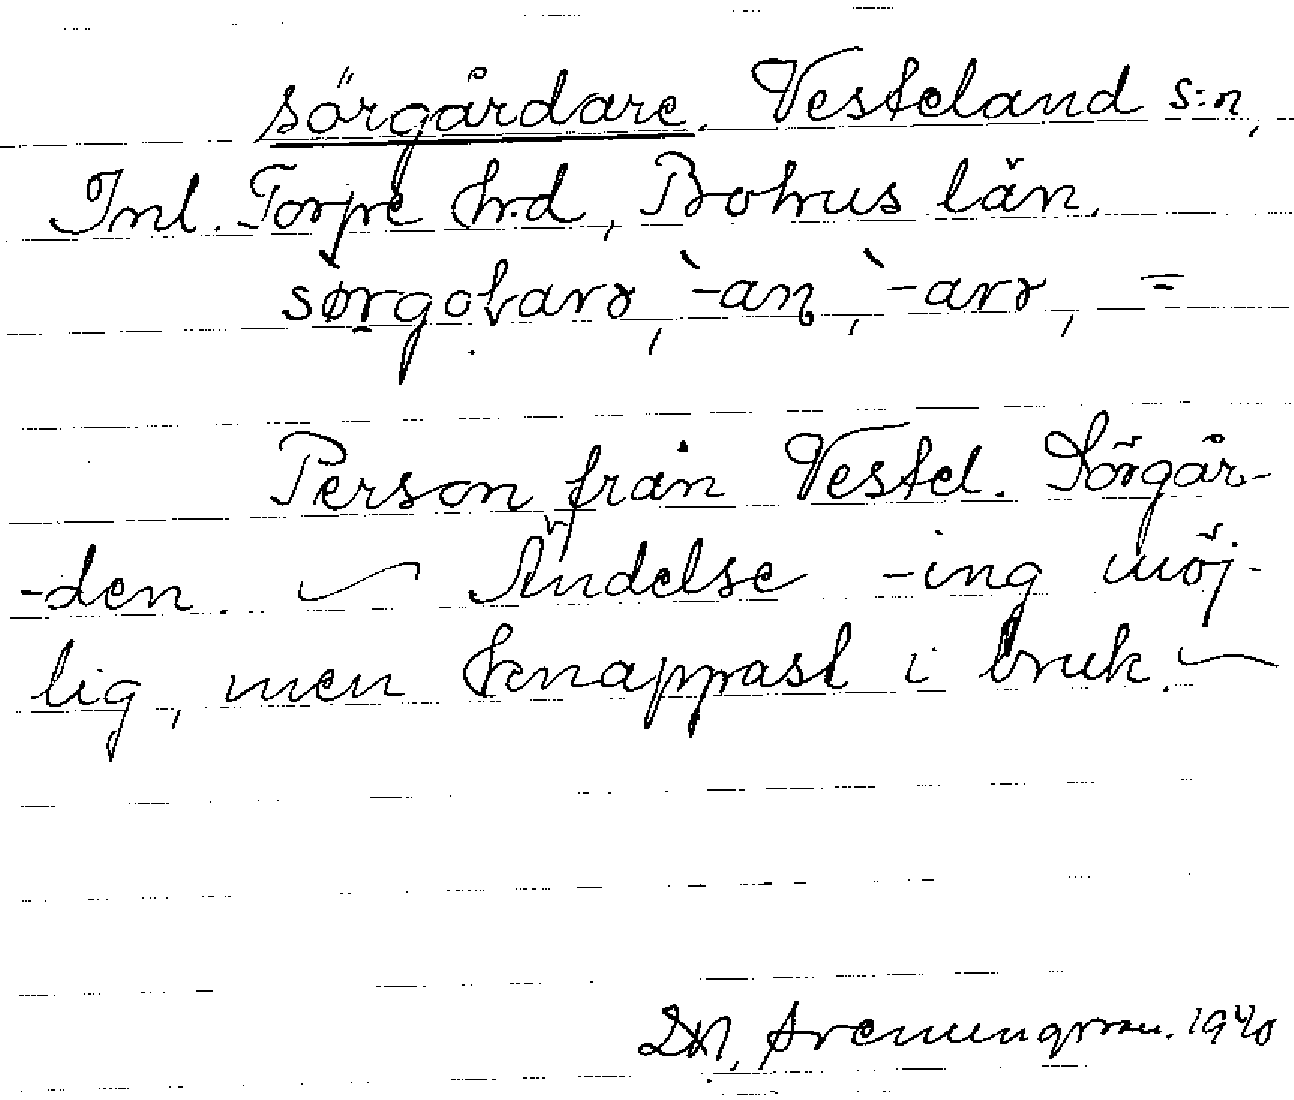 sörgårdare. Vesteland s:n,
Inl. Torpe hrd, Bohus län.
sørgoɫarə, -an, -arə, =
Person från Vestel. Sörgår-
-den. ~ Ändelse -ing möj-
lig, men knappast i bruk. ~
1940